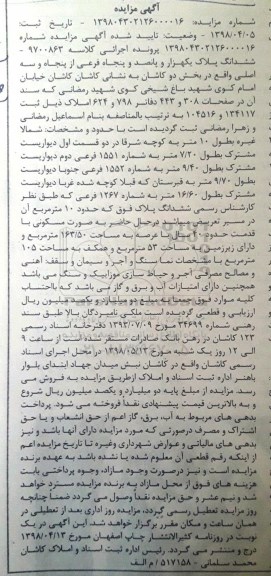 آگهی مزایده
شماره مزایده: ۱۳۹۸۰۴۳۰۲۱۲۶۰۰۰۰۱۶ - تاریخ ثبت:
۱۳۹۸/۰۴/۰۵ - وضعیت: تایید شده آگهی مزایده شماره
۱۳۹۸۰۴۳۰۲۱۲۶۰۰۰۰۱۶ پرونده اجرائی کلاسه ۹۷۰۰۸۶۳ -
ششدانگ پلاک یکهزار و پانصد و پنجاه فرعی از پنجاه و سه
اصلی واقع در بخش دو کاشان به نشانی کاشان کاشان خیابان
امام کوی شهید باغ شیخی کوی شهید رمضانی که سند
آن در صفحات ۳۰۸ و ۴۴۳ دفاتر ۷۹۸ و ۶۲۴ املاک ذیل ثبت
۱۳۴۱۱۷ و ۱۰۴۵۱۶ به ترتیب بالمناصفه بنام اسماعیل رمضانی
و زهرا رمضانی ثبت گردیده است با حدود و مشخصات: شمالا
غیره بطول ۱۰ متر به کوچه شرقا در دو قسمت اول دیواریست
مشترک بطول ۷/۲۰ متر به شماره ۱۵۵۱ فرعی دوم دیواریست
مشترک بطول ۹/۴۰ متر به شماره ۱۵۵۲ فرعی جنوبا دیواریست
بطول ۹/۷۰ متر به قبرستان که قبلا کوچه شده غربا دیواریست
مشترک بطول ۱۶/۶۰ متر به شماره ۱۲۶۷ فرعی که طبق نظر
کارشناس رسمی ششدانگ پلاک فوق که حدود ۱۰ مترمربع آن
در مسیر تعریض میباشد درحال حاضر به صورت مسکونی با
قدمت حدود ۲۰ سال به مساحت ۱۶۳/۵۰ مترمربع و
دارای زیرزمین به مساحت ۵۳ مترمربع و همکف به مساحت ۱۰۵
مترمربع با مشخصات نما سنگ و آجر و سیمان و سقف آهنی
و مصالح مصرفی آجر و حیاط سازی موزاییک و سنگ می باشد
همچنین دارای امتیازات آب و برق و گاز می باشد که بااحتساب
کلیه موارد فوق جمعا به مبلغ دو میلیارد و یکصد میلیون ریال
ارزیابی و قطعی گردیده است ملکی نامبردگان بالا طبق سند
رهنی شماره ۳۴۶۹۹ مورخ ۱۳۹۳/۰۷/۰۹ دفترخانه اسناد رسمی
۱۲۳ کاشان در رهن بانک صادرات مستقر شده است از ساعت ۹
الی ۱۲ روز یک شنبه مورخ ۱۳۹۸/۰۵/۱۳ در محل اجرای اسناد
رسمی کاشان واقع در کاشان نبش میدان جهاد ابتدای بلوار
باهنر اداره ثبت اسناد و املاک ازطریق مزایده به فروش می
رسد. مزایده از مبلغ پایه دو میلیارد و یکصد میلیون ریال شروع
و به بالاترین قیمت پیشنهادی نقدا فروخته می شود. پرداخت
بدهی های مربوط به آب، برق، گاز اعم از حق انشعاب و یا حق
اشتراک و مصرف درصورتی که مورد مزایده دارای آنها باشد و نیز
بدهی های مالیاتی و عوارض شهرداری وغیره تا تاریخ مزایده اعم
از اینکه رقم قطعی آن معلوم شده یا نشده باشد به عهده برنده
مزایده است و نیز درصورت وجود مازاد، وجوه پرداختی بابت
هزینه های فوق از محل مازاد به برنده مزایده مسترد خواهد
شد و نیم عشر و حق مزایده نقدا وصول می گردد ضمنا چنانچه
روز مزایده تعطیل رسمی گردد، مزایده روز اداری بعد از تعطیلی در
همان ساعت و مکان مقرر برگزار خواهد شد. این آگهی در یک
نوبت در روزنامه کثیرالانتشار چاپ اصفهان مورخ ۱۳۹۸/۰۴/۱۳
درج و منتشر می گردد. رئیس اداره ثبت اسناد و املاک کاشان
محمد سلمانی - ۵۱۷۱۵۸ / م الف